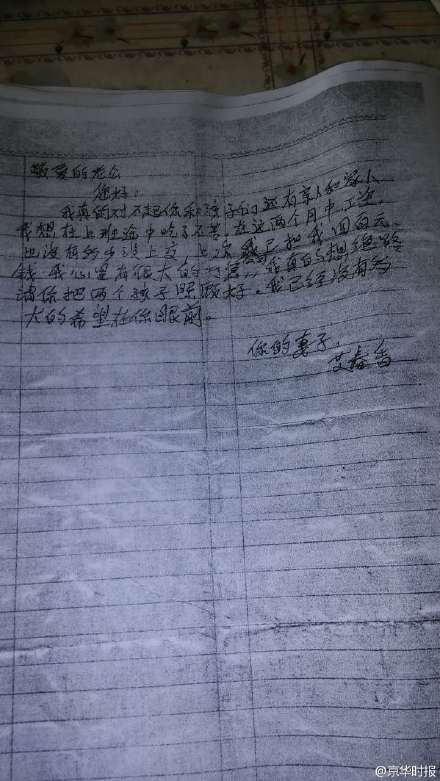 敬爱的老公
您好:
我真的对不起你和孩子们还有亲人和家人
我想在上班途中吃了不苦,在这两个月中工资
也没有 上交 上次 已扣我四百元
钱 我心里有很大的 我真的想绝路
请你把两个孩子照顾好,我已经没有多
大的希望在你眼前。
你的妻子,
艾春香
@京华时报